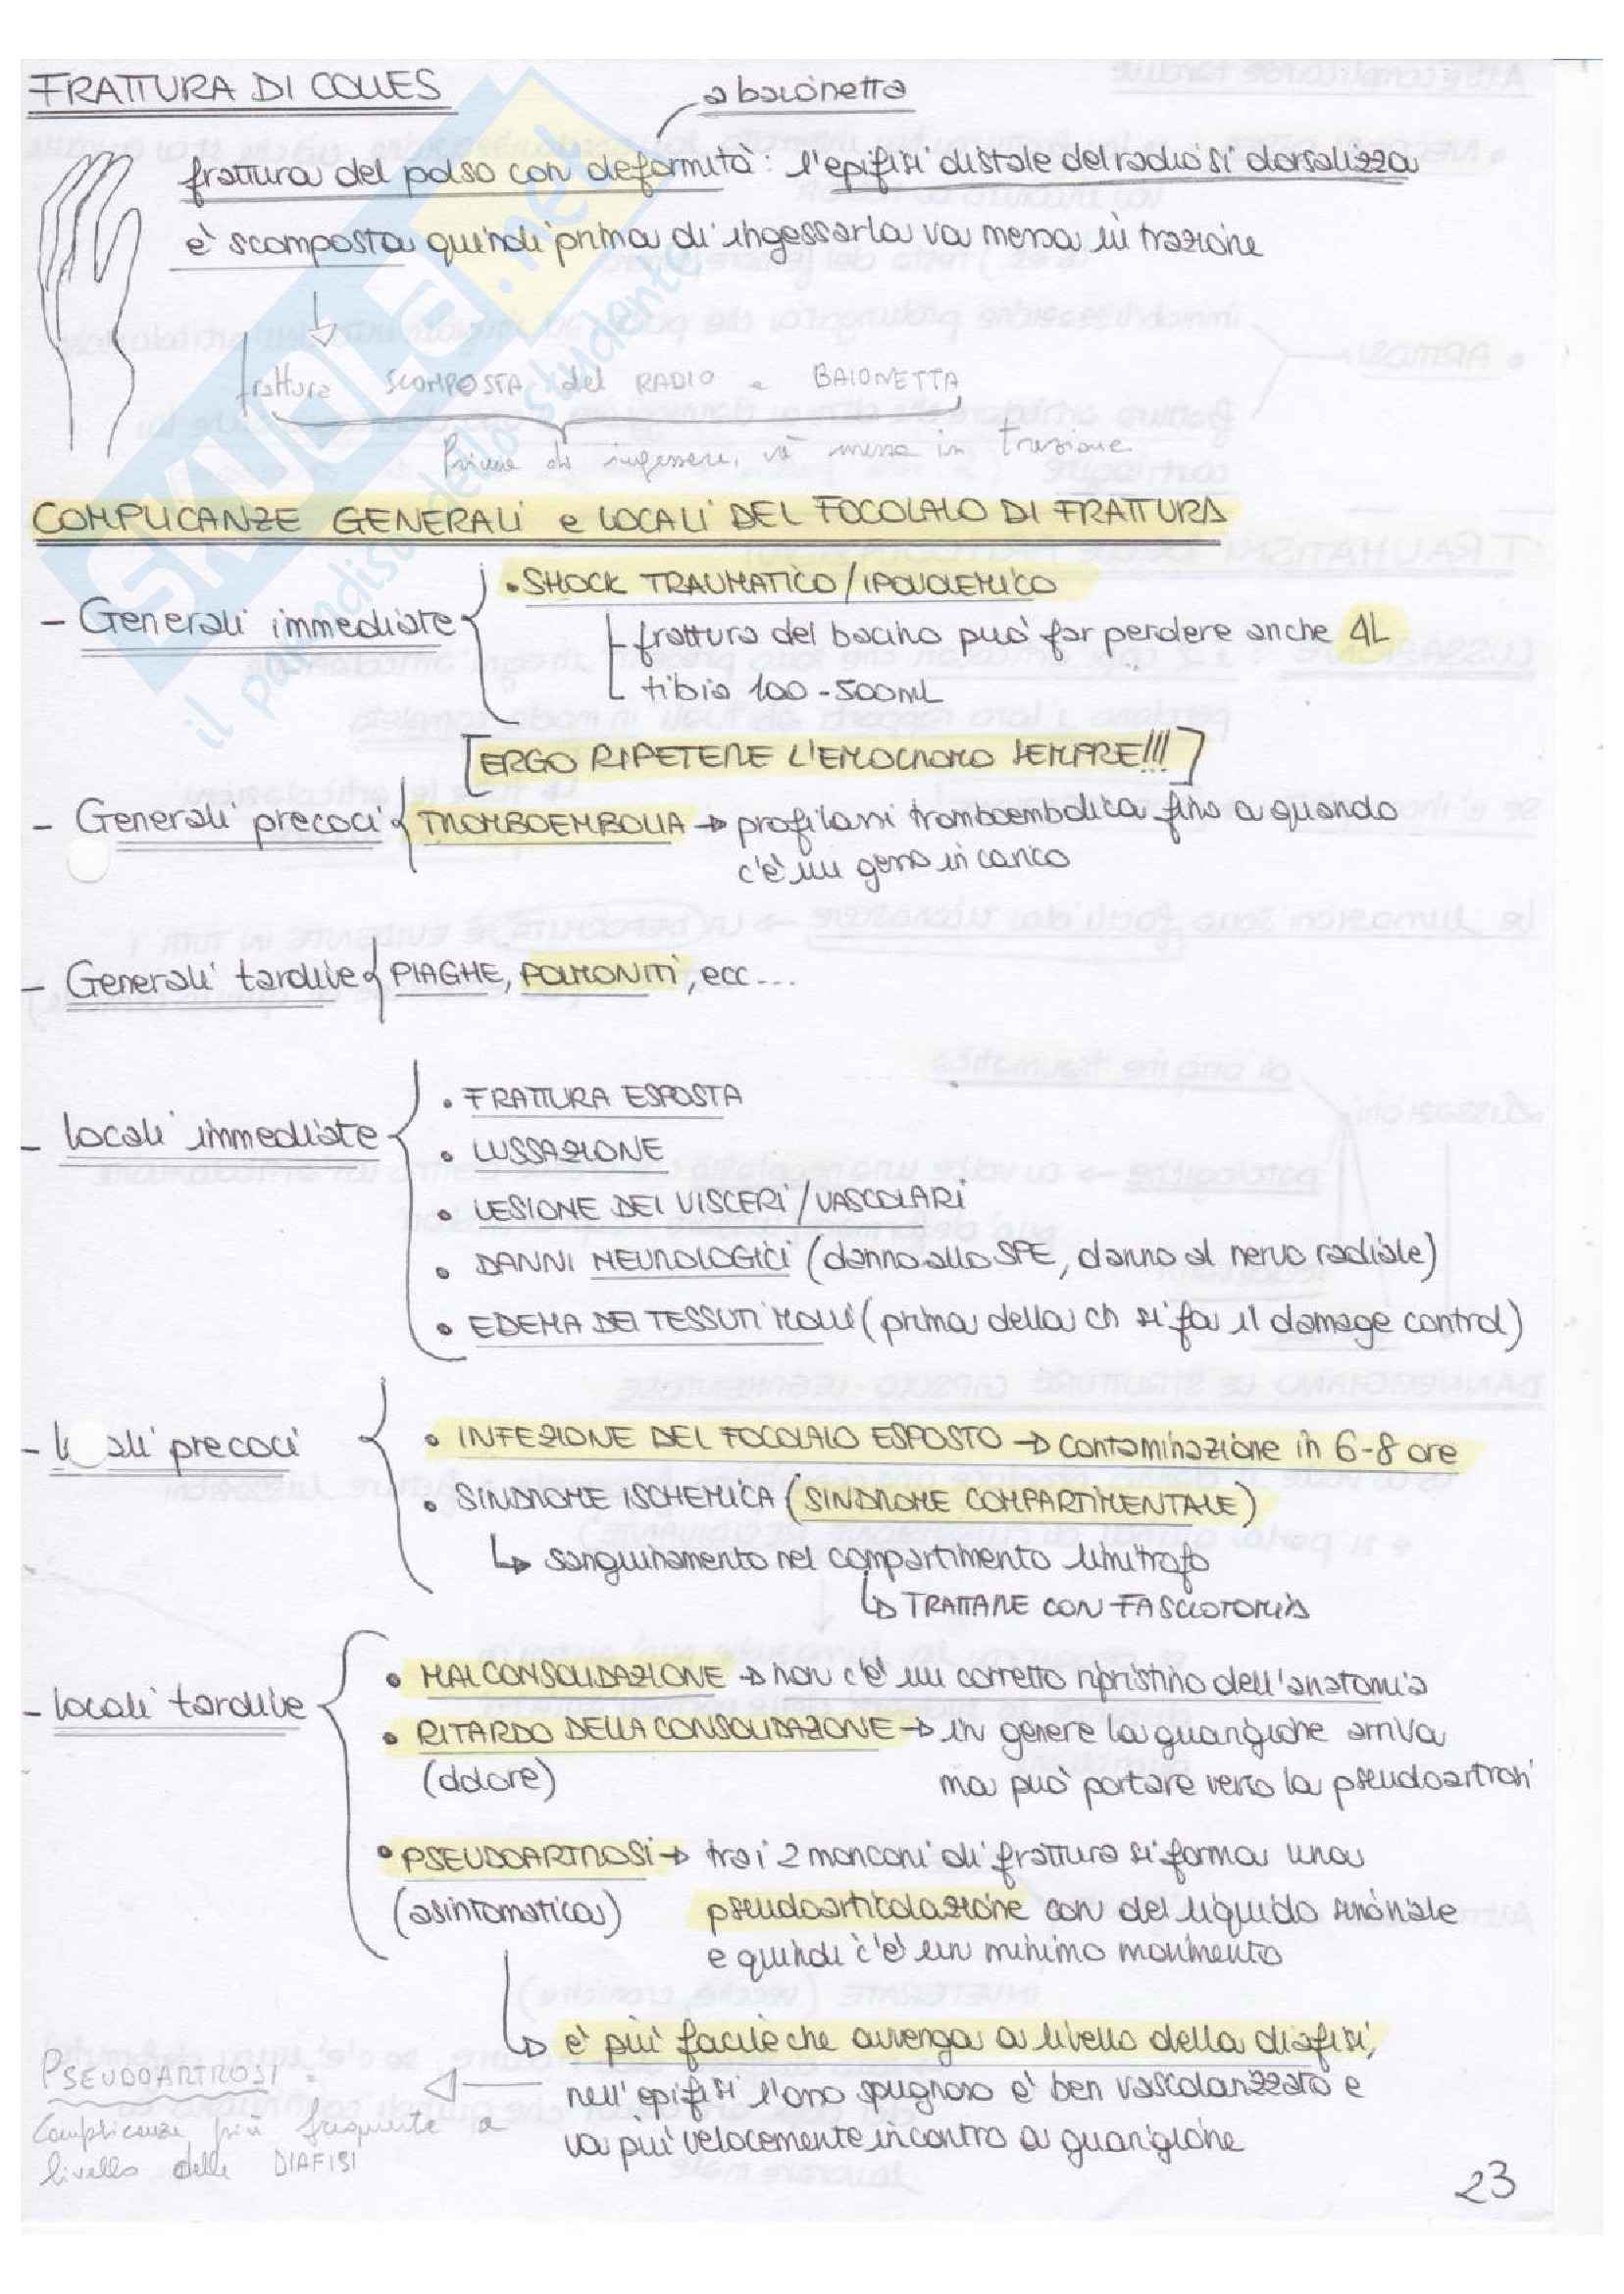 FRATTURA DI COLLES
a baionetta
frattura del polso con deformità: l'epifisi distale del radio si dorsalizza
è scomposta quindi prima di ingessarla va messa in trazione
frattura SCOMPOSTA del RADIO a BAIONETTA
Prima di ingessare, và messa in trazione
COMPLICANZE GENERALI e LOCALI DEL FOCOLAIO DI FRATTURA
- Generali immediate
• SHOCK TRAUMATICO/IPOVOLEMICO
frattura del bacino può far perdere anche 4L
tibia 100-500mL
[ERGO RIPETERE L'EMOCROMO SEMPRE!!!]
- Generali precoci { TROMBOEMBOLIA → profilassi tromboembolica fino a quando
c'è un gesso in carico
- Generali tardive { PIAGHE, POLMONITI, ecc...
- locali immediate
• FRATTURA ESPOSTA
• LUSSAZIONE
• LESIONE DEI VISCERI/VASCOLARI
• DANNI NEUROLOGICI (danno allo SPE, danno al nervo radiale)
• EDEMA DEI TESSUTI MOLLI (prima della ch si fa il damage control)
- locali precoci
• INFEZIONE DEL FOCOLAIO ESPOSTO → contaminazione in 6-8 ore
• SINDROME ISCHEMICA (SINDROME COMPARTIMENTALE)
↳ sanguinamento nel compartimento limitrofo
↳ TRATTARE CON FASCIOTOMIA
- locali tardive
• MALCONSOLIDAZIONE → non c'è un corretto ripristino dell'anatomia
• RITARDO DELLA CONSOLIDAZIONE → in genere la guarigione arriva
(dolore) ma può portare verso la pseudoartrosi
• PSEUDOARTROSI → tra i 2 monconi di frattura si forma una
(asintomatica) pseudoarticolazione con del liquido sinoviale
e quindi c'è un minimo movimento
↳ è più facile che avvenga a livello della diafisi,
nell'epifisi l'osso spugnoso è ben vascolarizzato e
va più velocemente incontro a guarigione
PSEUDOARTROSI =
Complicanza più frequente a
livello delle DIAFISI
23
SKUOLA.net
il paradiso dello studente